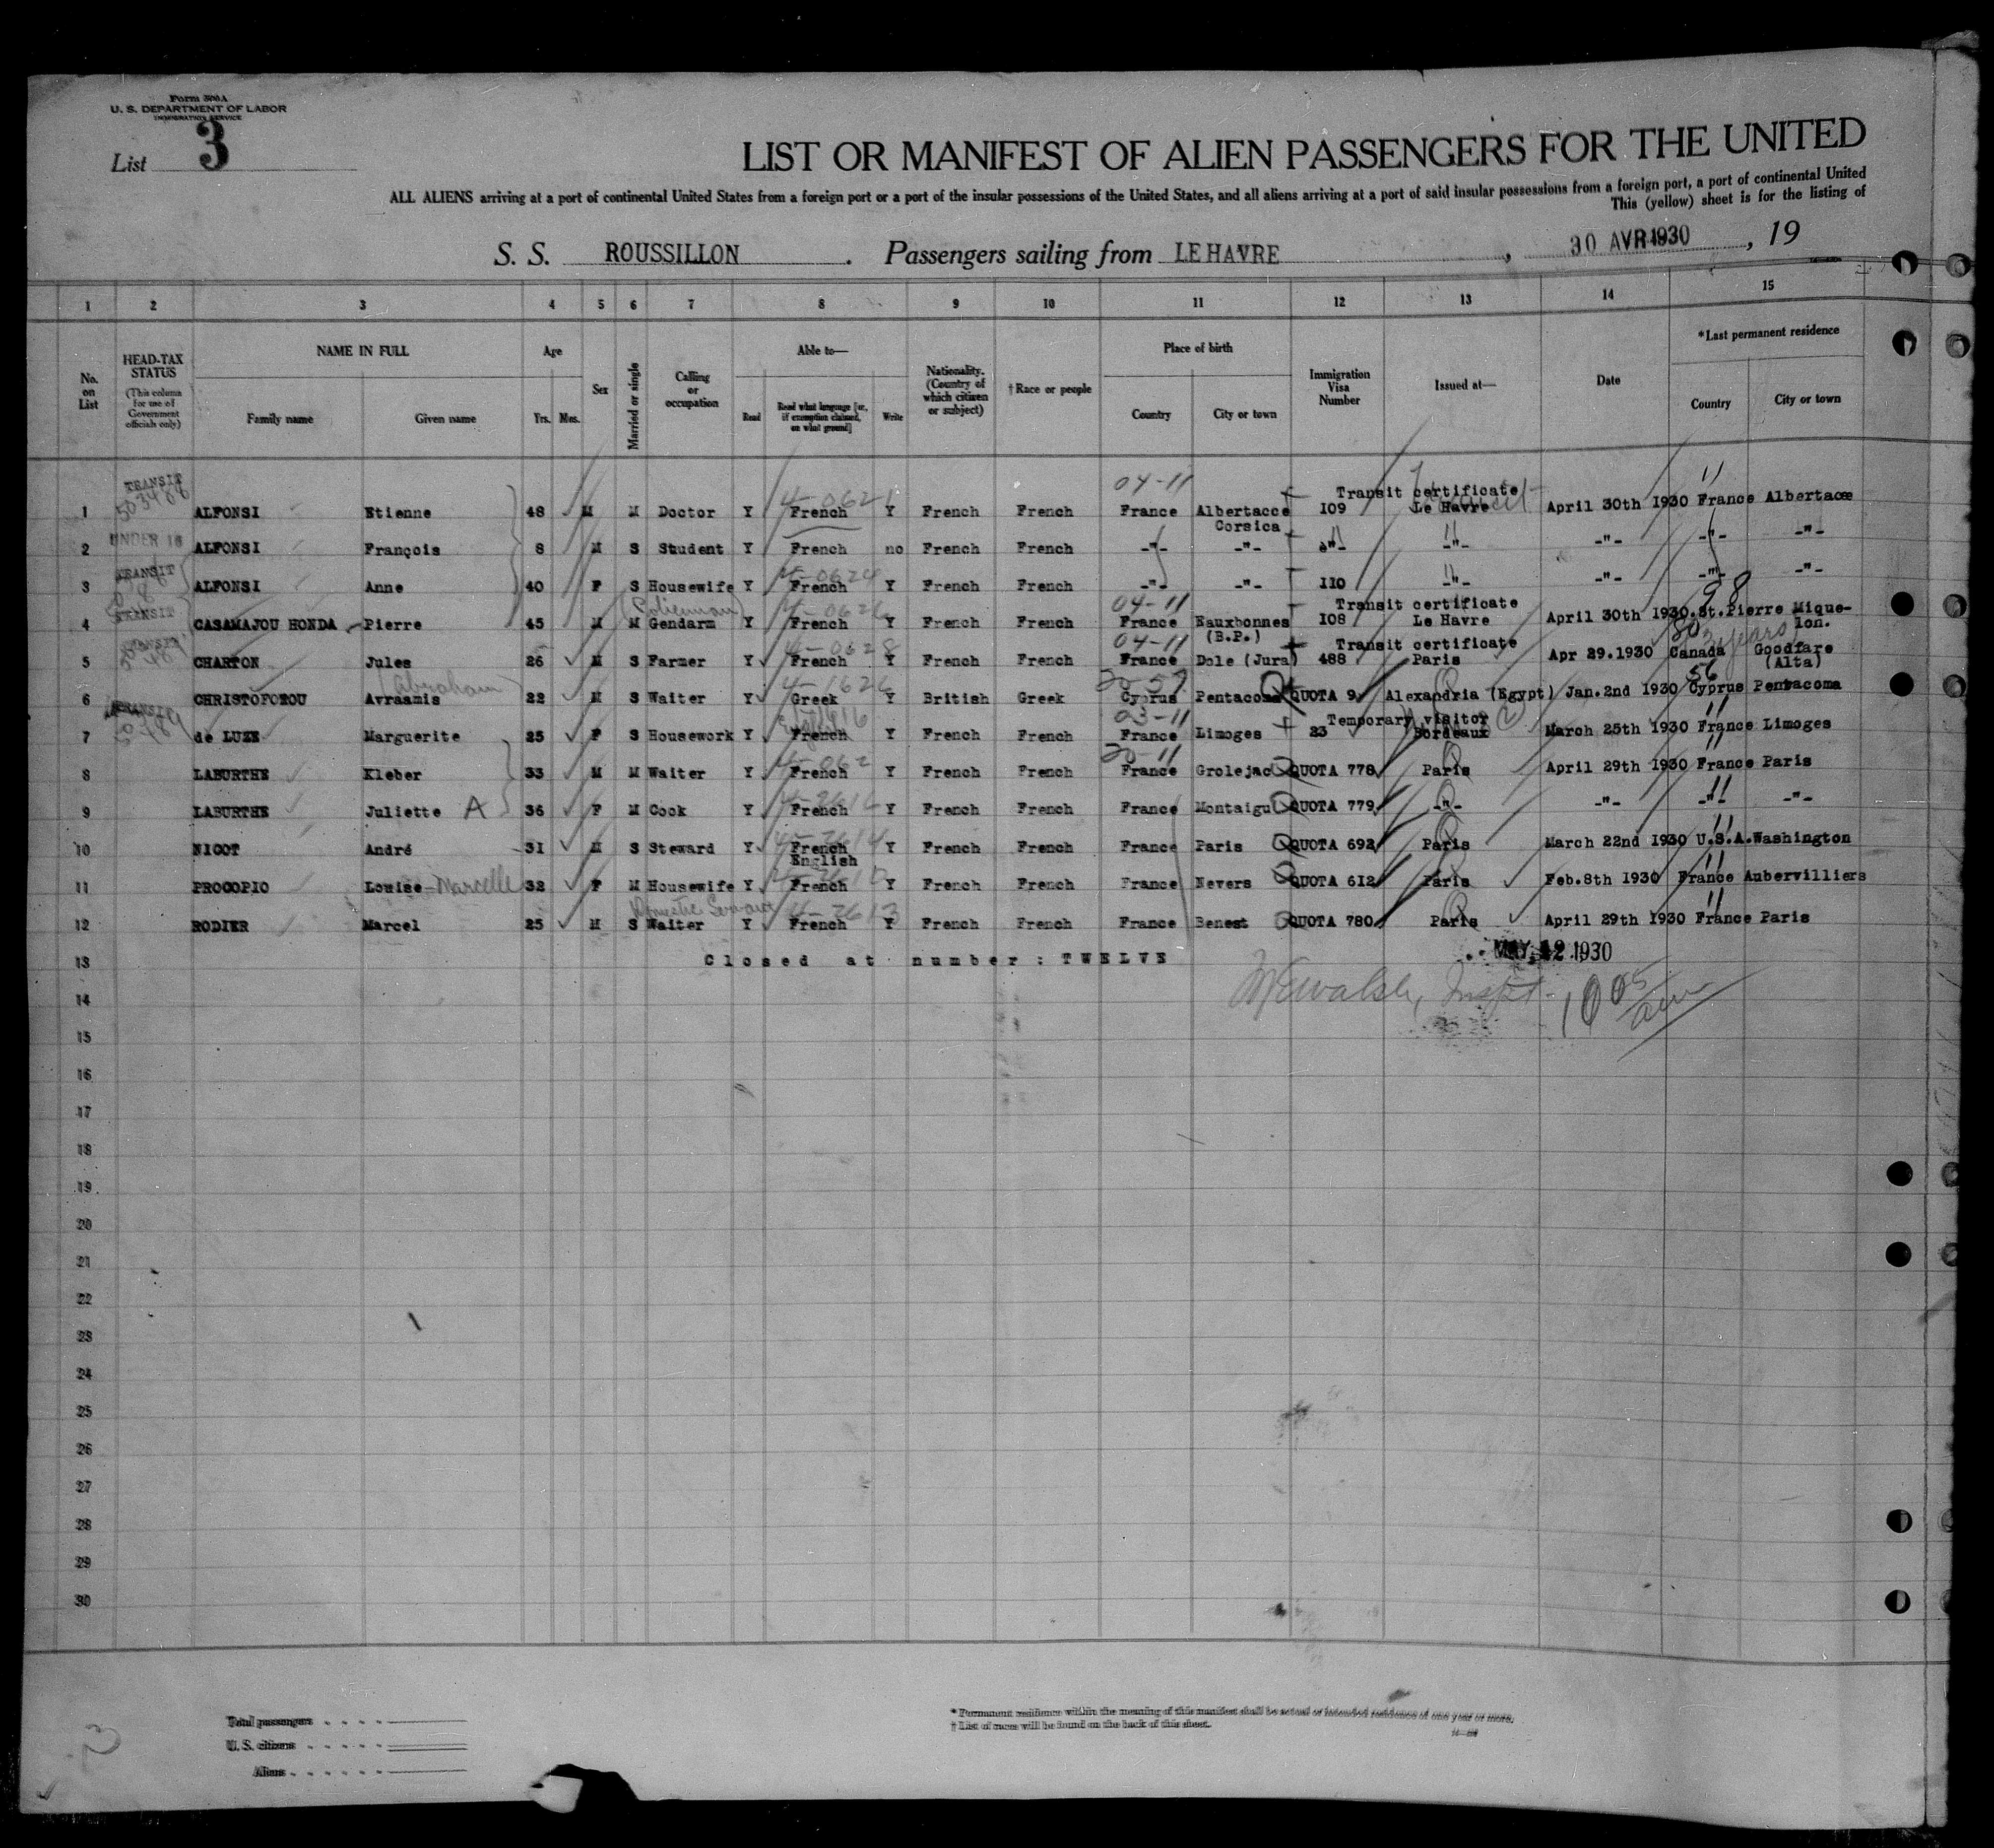 Form 500A
U. S. DEPARTMENT OF LABOR
IMMIGRATION SERVICE
List 3
LIST OR MANIFEST OF ALIEN PASSENGERS FOR THE UNITED
ALL ALIENS arriving at a port of continental United States from a foreign port or a port of the insular possessions of the United States, and all aliens arriving at a port of said insular possessions from a foreign port, a port of continental United
This (yellow) sheet is for the listing of
S. S. ROUSSILLON. Passengers sailing from LE HAVRE, 30 AVR 1930, 19
1 2 3 4 5 6 7 8 9 10 11 12 13 14 15
No. on List
HEAD-TAX STATUS (This column for use of Government officials only)
NAME IN FULL Family name Given name
Age Yrs. Mos.
Sex
Married or single
Calling or occupation
Able to— Read Read what language [or, if exemption claimed, on what ground] Write
Nationality. (Country of which citizen or subject)
†Race or people
Place of birth Country City or town
Immigration Visa Number
Issued at—
Date
*Last permanent residence Country City or town
TRANSIT 04-11 Transit certificate 11
1 ALFONSI Etienne 48 M M Doctor Y French Y French French France Albertacce Corsica 109 Le Havre April 30th 1930 France Albertacce
UNDER 16
2 ALFONSI François 8 M S Student Y French no French French -"- -"- -"- -"- -"- -"- -"-
TRANSIT
3 ALFONSI Anne 40 F S Housewife Y French Y French French -"- -"- 110 -"- -"- -"- -"-
TRANSIT (Policeman) 04-11 Transit certificate 98
4 CASAMAJOU HONDA Pierre 45 M M Gendarm Y French Y French French France Eauxbonnes (B.P.) 108 Le Havre April 30th 1930. St.Pierre Mique- lon.
TRANSIT 04-11 Transit certificate 3 years
5 CHARTON Jules 26 M S Farmer Y French Y French French France Dole (Jura) 488 Paris Apr 29.1930 Canada Goodfare (Alta)
(Abraham) 56
6 CHRISTOFOROU Avraamis 22 M S Waiter Y Greek Y British Greek Cyprus Pentacoma QUOTA 9 Alexandria (Egypt) Jan.2nd 1930 Cyprus Pentacoma
TRANSIT 03-11 Temporary visitor 11
7 de LUZE Marguerite 25 F S Housework Y French Y French French France Limoges 23 Bordeaux March 25th 1930 France Limoges
20-11 11
8 LABURTHE Kleber 33 M M Waiter Y French Y French French France Grolejac QUOTA 778 Paris April 29th 1930 France Paris
9 LABURTHE Juliette A 36 F M Cook Y French Y French French France Montaigu QUOTA 779 -"- -"- -"- -"-
10 NICOT André 31 M S Steward Y French English Y French French France Paris QUOTA 692 Paris March 22nd 1930 U.S.A. Washington
11 PROCOPIO Louise-Marcelle 32 F M Housewife Y French Y French French France Nevers QUOTA 612 Paris Feb.8th 1930 France Aubervilliers
Domestic Servant
12 RODIER Marcel 25 M S Waiter Y French Y French French France Benest QUOTA 780 Paris April 29th 1930 France Paris
13 Closed at number : TWELVE MAY 12 1930
14
15
16
17
18
19
20
21
22
23
24
25
26
27
28
29
30
Total passengers
U. S. citizens
Aliens
* Permanent residence within the meaning of this manifest shall be actual or intended residence of one year or more.
† List of races will be found on the back of this sheet.